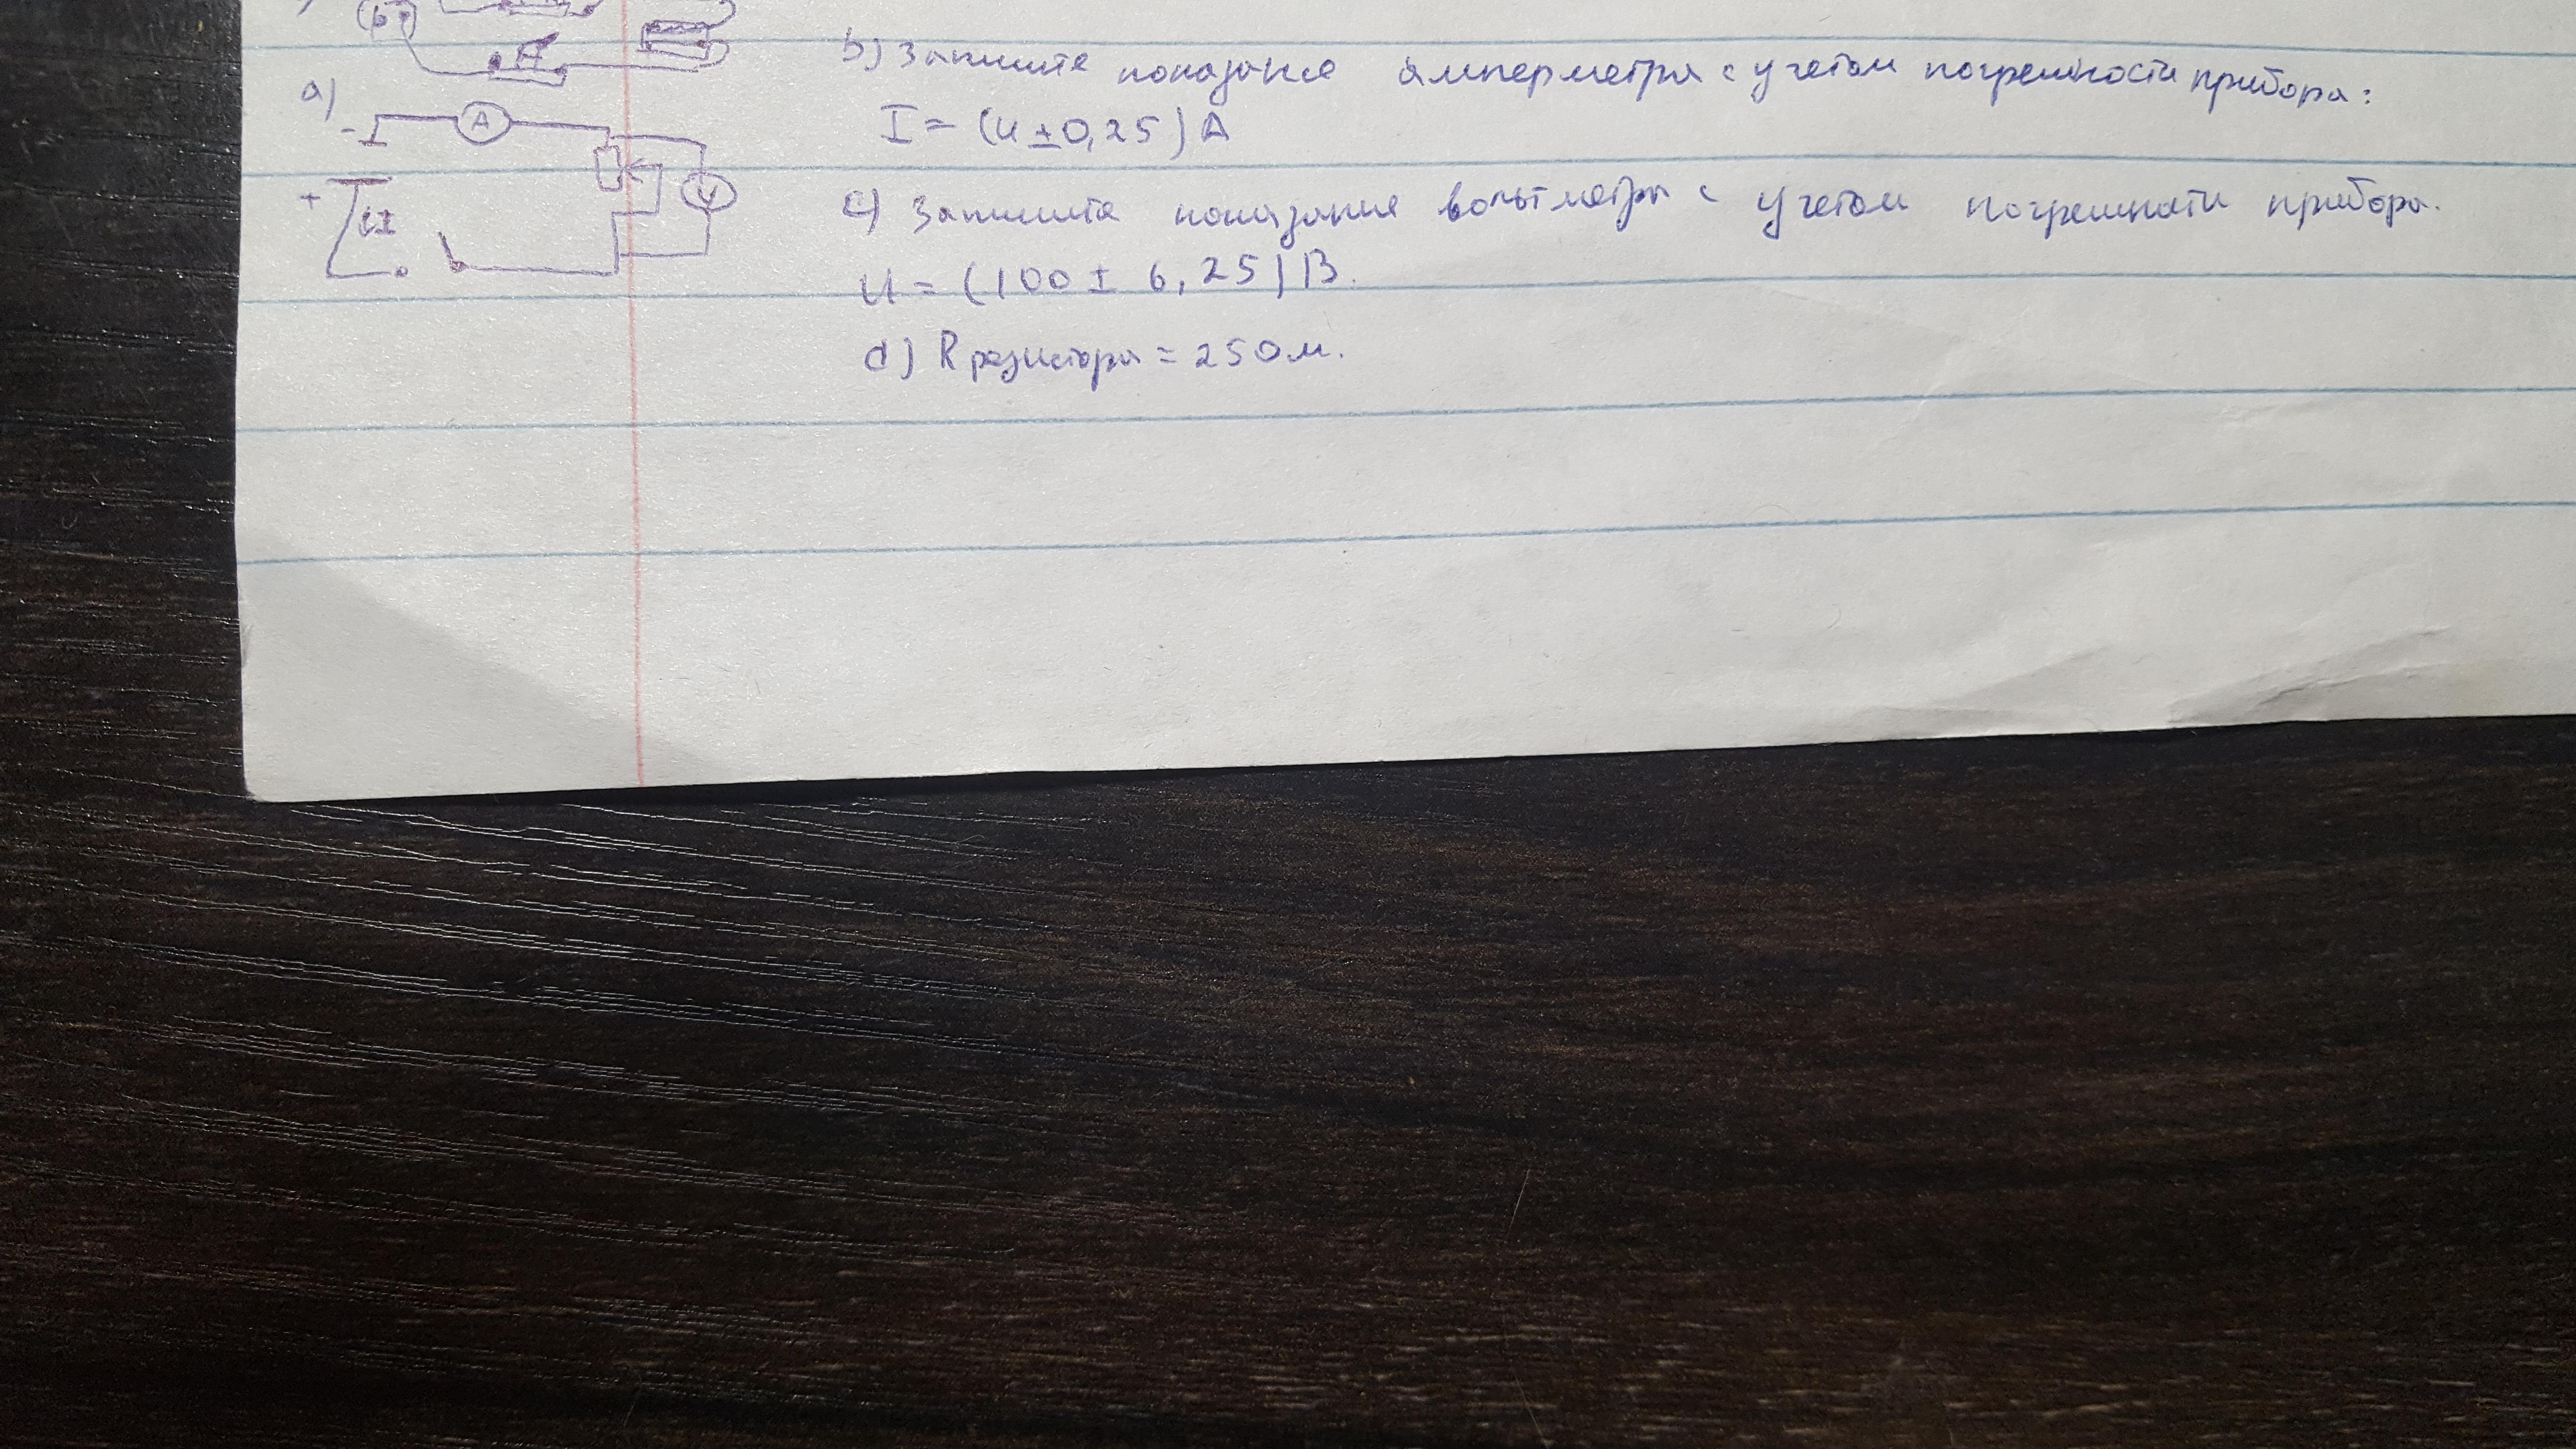 b) Запишите показания амперметра с учетом погрешности прибора:
I = (4 ± 0,25) A
c) Запишите показания вольтметра с учетом погрешности прибора.
U = (100 ± 6,25) В.
d) R резистора = 25 Ом.
a)
- A
+ V